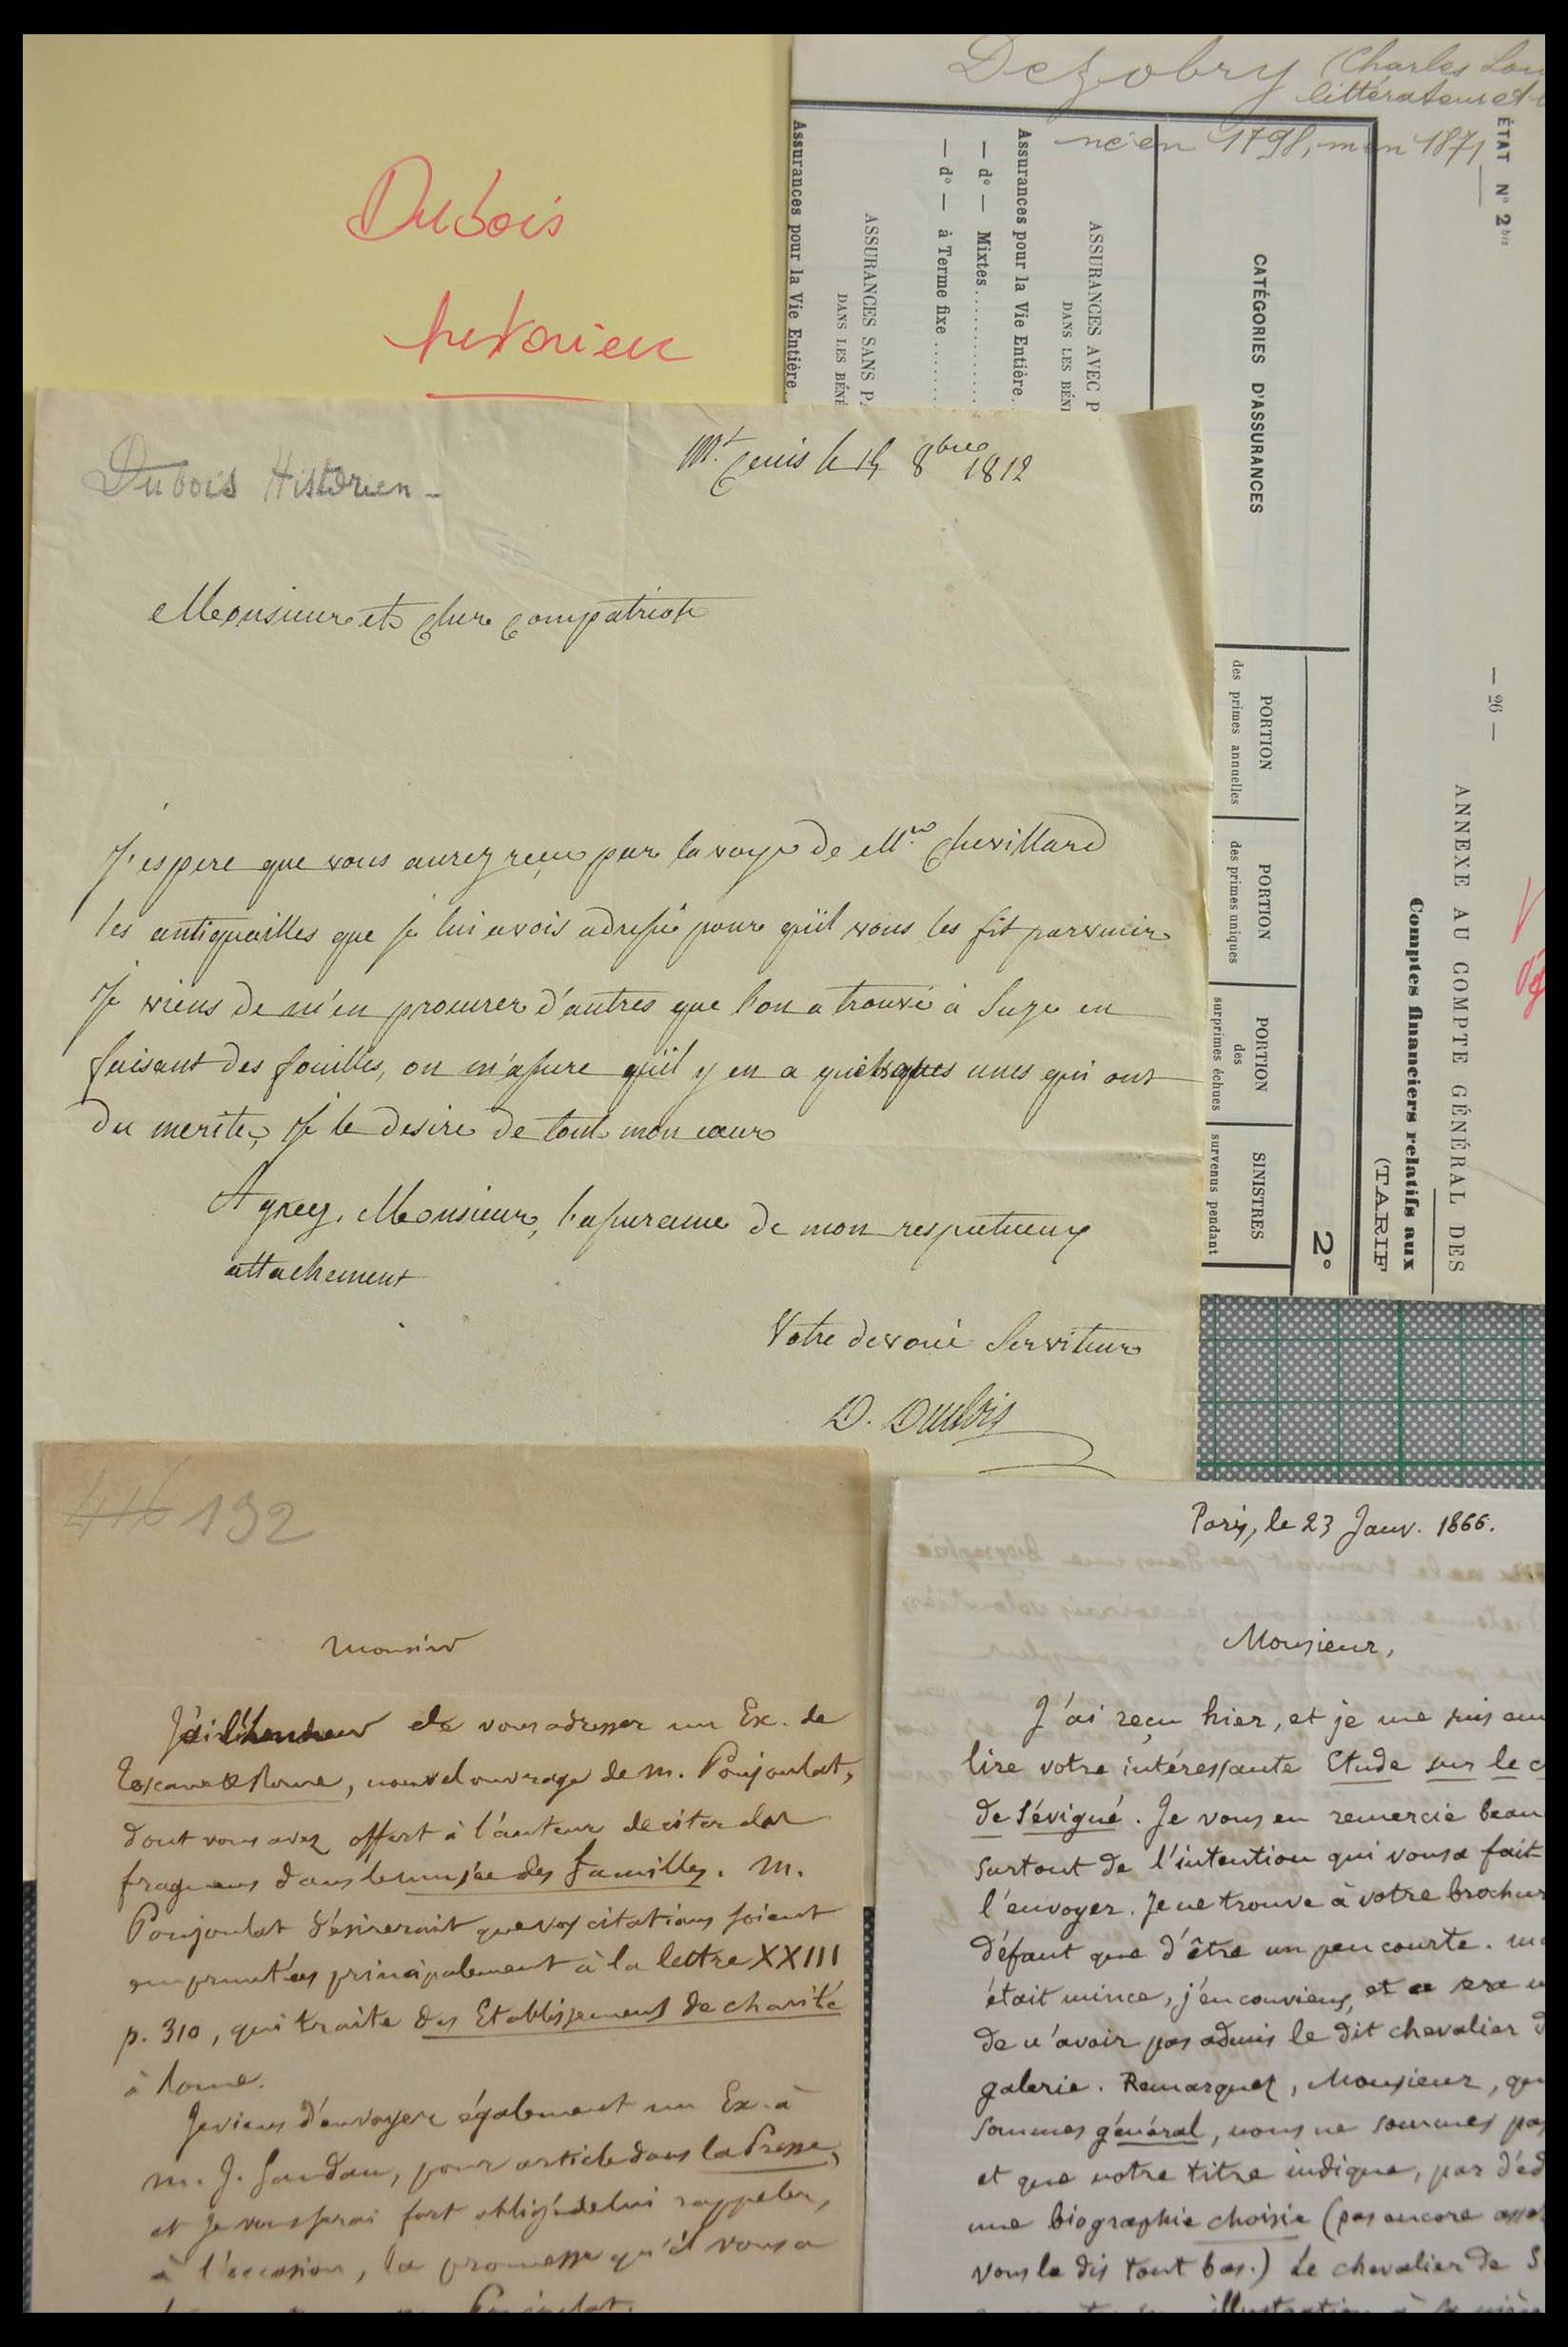 Dubois
historien
Dezobry (Charles Lou
littérateur et
né en 1798, m en 1871
ÉTAT Nº 2 bis
— 26 —
ANNEXE AU COMPTE GÉNÉRAL DES
Comptes financiers relatifs aux
(TARIF
2º
CATÉGORIES D'ASSURANCES
PORTION
des primes annuelles
PORTION
des primes uniques
PORTION
des
surprimes échues
SINISTRES
survenus pendant
ASSURANCES AVEC P
DANS LES BÉNÉ
Assurances pour la Vie Entière..
— dº — Mixtes.............
— dº — à Terme fixe ........
ASSURANCES SANS PA
DANS LES BÉNÉ
Assurances pour la Vie Entière..
Dubois Historien -
Mt Cenis le 14 8bre 1812
Monsieur et cher compatriote
J'espere que vous aurez reçu par la voye de Mr. Chevillard
les antiquailles que je lui avois adressé pour qu'il vous les fit parvenir
Je viens de m'en procurer d'autres que l'on a trouvé à Suze en
faisant des fouilles, on m'assure qu'il y en a quelques unes qui ont
du merite, Je le desire de tout mon cœur
Agreez, Monsieur, l'assurance de mon respectueux
attachement
Votre devoué Serviteur
D. Dubois
416 192
Monsieur
J'ai l'honneur de vous adresser un Ex. de
Toscane & Rome, nouvel ouvrage de m. Poujoulat,
dont vous avez offert à l'auteur de citer des
fragmens dans le musée des familles. M.
Poujoulat désirerait que vos citations soient
empruntées principalement à la lettre XXIII
p. 310, qui traite des Etablissemens de charité
à Rome.
Je viens d'envoyer également un Ex. à
m. J. Sandau, pour article dans la Presse,
et je vous serai fort obligé de lui rappeler,
à l'occasion, la promesse qu'il vous a
Poujoulat.
Paris, le 23 Janv. 1866.
Monsieur,
J'ai reçu hier, et je me suis am
lire votre intéressante Etude sur le c
de Sévigné. Je vous en remercie beau
surtout de l'intention qui vous a fait
l'envoyer. Je ne trouve à votre brochur
défaut que d'être un peu courte. ma
était mince, j'en conviens, et ce sera u
de n'avoir pas admis le dit chevalier d
galerie. Remarquez, Monsieur, qu
sommes général, nous ne sommes pas
et que notre titre indique, par d'ed
une biographie choisie (pas encore asse
vous le dis tout bas.) Le chevalier de S
illustration à la